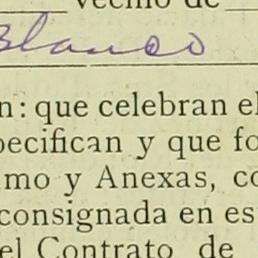 vecino de
Blanco
n: que celebran el
pecifican y que fo
mo y Anexas, co
consignada en es
el Contrato de